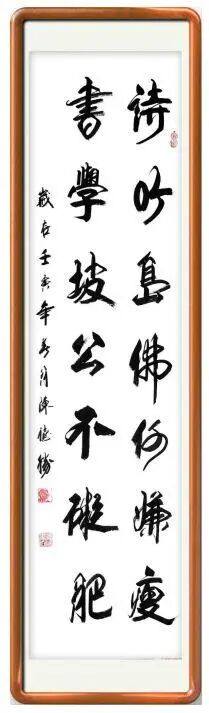 詩吟島佛何嫌瘦
書學坡公不礙肥
歲在壬寅年月陳德勝